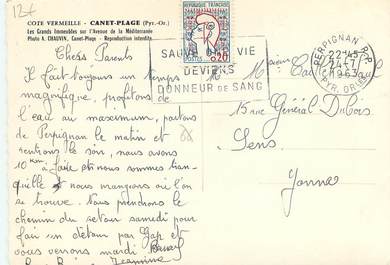 12+
COTE VERMEILLE - CANET-PLAGE (Pyr.-Or.)
Les Grands Immeubles sur l'Avenue de la Méditerranée
Photo A. CHAUVIN, Canet-Plage - Reproduction interdite.
REPUBLIQUE FRANCAISE
POSTES 0,20
SAUVER UNE VIE
DEVIENS
DONNEUR DE SANG
PERPIGNAN R.P.
22H45
24-7
1963
PYR. ORIENT.
Chers Parents
Il fait toujours un temps
magnifique, profitons de
l'eau au maximum, partons
de Perpignan le matin et
rentrons le soir, nous avons
10 km à faire où nous sommes tran-
quille et nous mangeons où l'on
se trouve. Nous prendrons le
chemin du retour samedi pour
faire un détour par Gap et
vous verrons mardi Baisers
Jeannine
M M
15 rue Général Dubois
Sens
Yonne